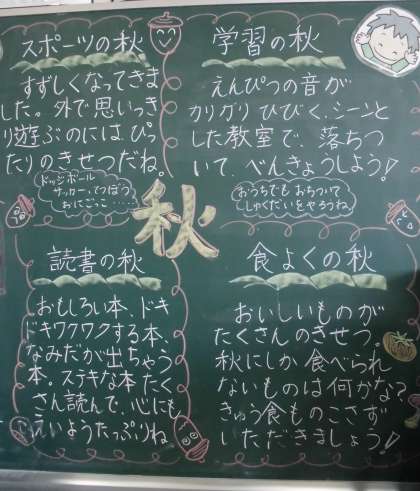 スポーツの秋
すずしくなってきま
した。外で思いっき
り遊ぶのには、ぴっ
たりのきせつだね。
ドッジボール
サッカー、てつぼう
おにごっこ・・・・・
学習の秋
えんぴつの音が
カリカリひびく、シーンと
した教室で、落ちつ
いて、べんきょうしよう!
おうちでもおちついて
しゅくだいをやろうね
秋
読書の秋
おもしろい本、ドキ
ドキワクワクする本、
なみだが出ちゃう
本。ステキな本たく
さん読んで、心にも
えいようたっぷりね
食よくの秋
おいしいものが
たくさんのきせつ。
秋にしか食べられ
ないものは何かな?
きゅう食ものこさず
いただきましょう!